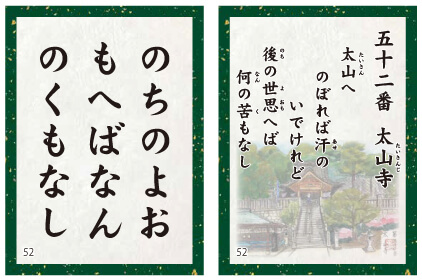 五十二番 太山寺
太山へ
のぼれば汗の
いでけれど
後の世思へば
何の苦もなし
52
のちのよお
もへばなん
のくもなし
52